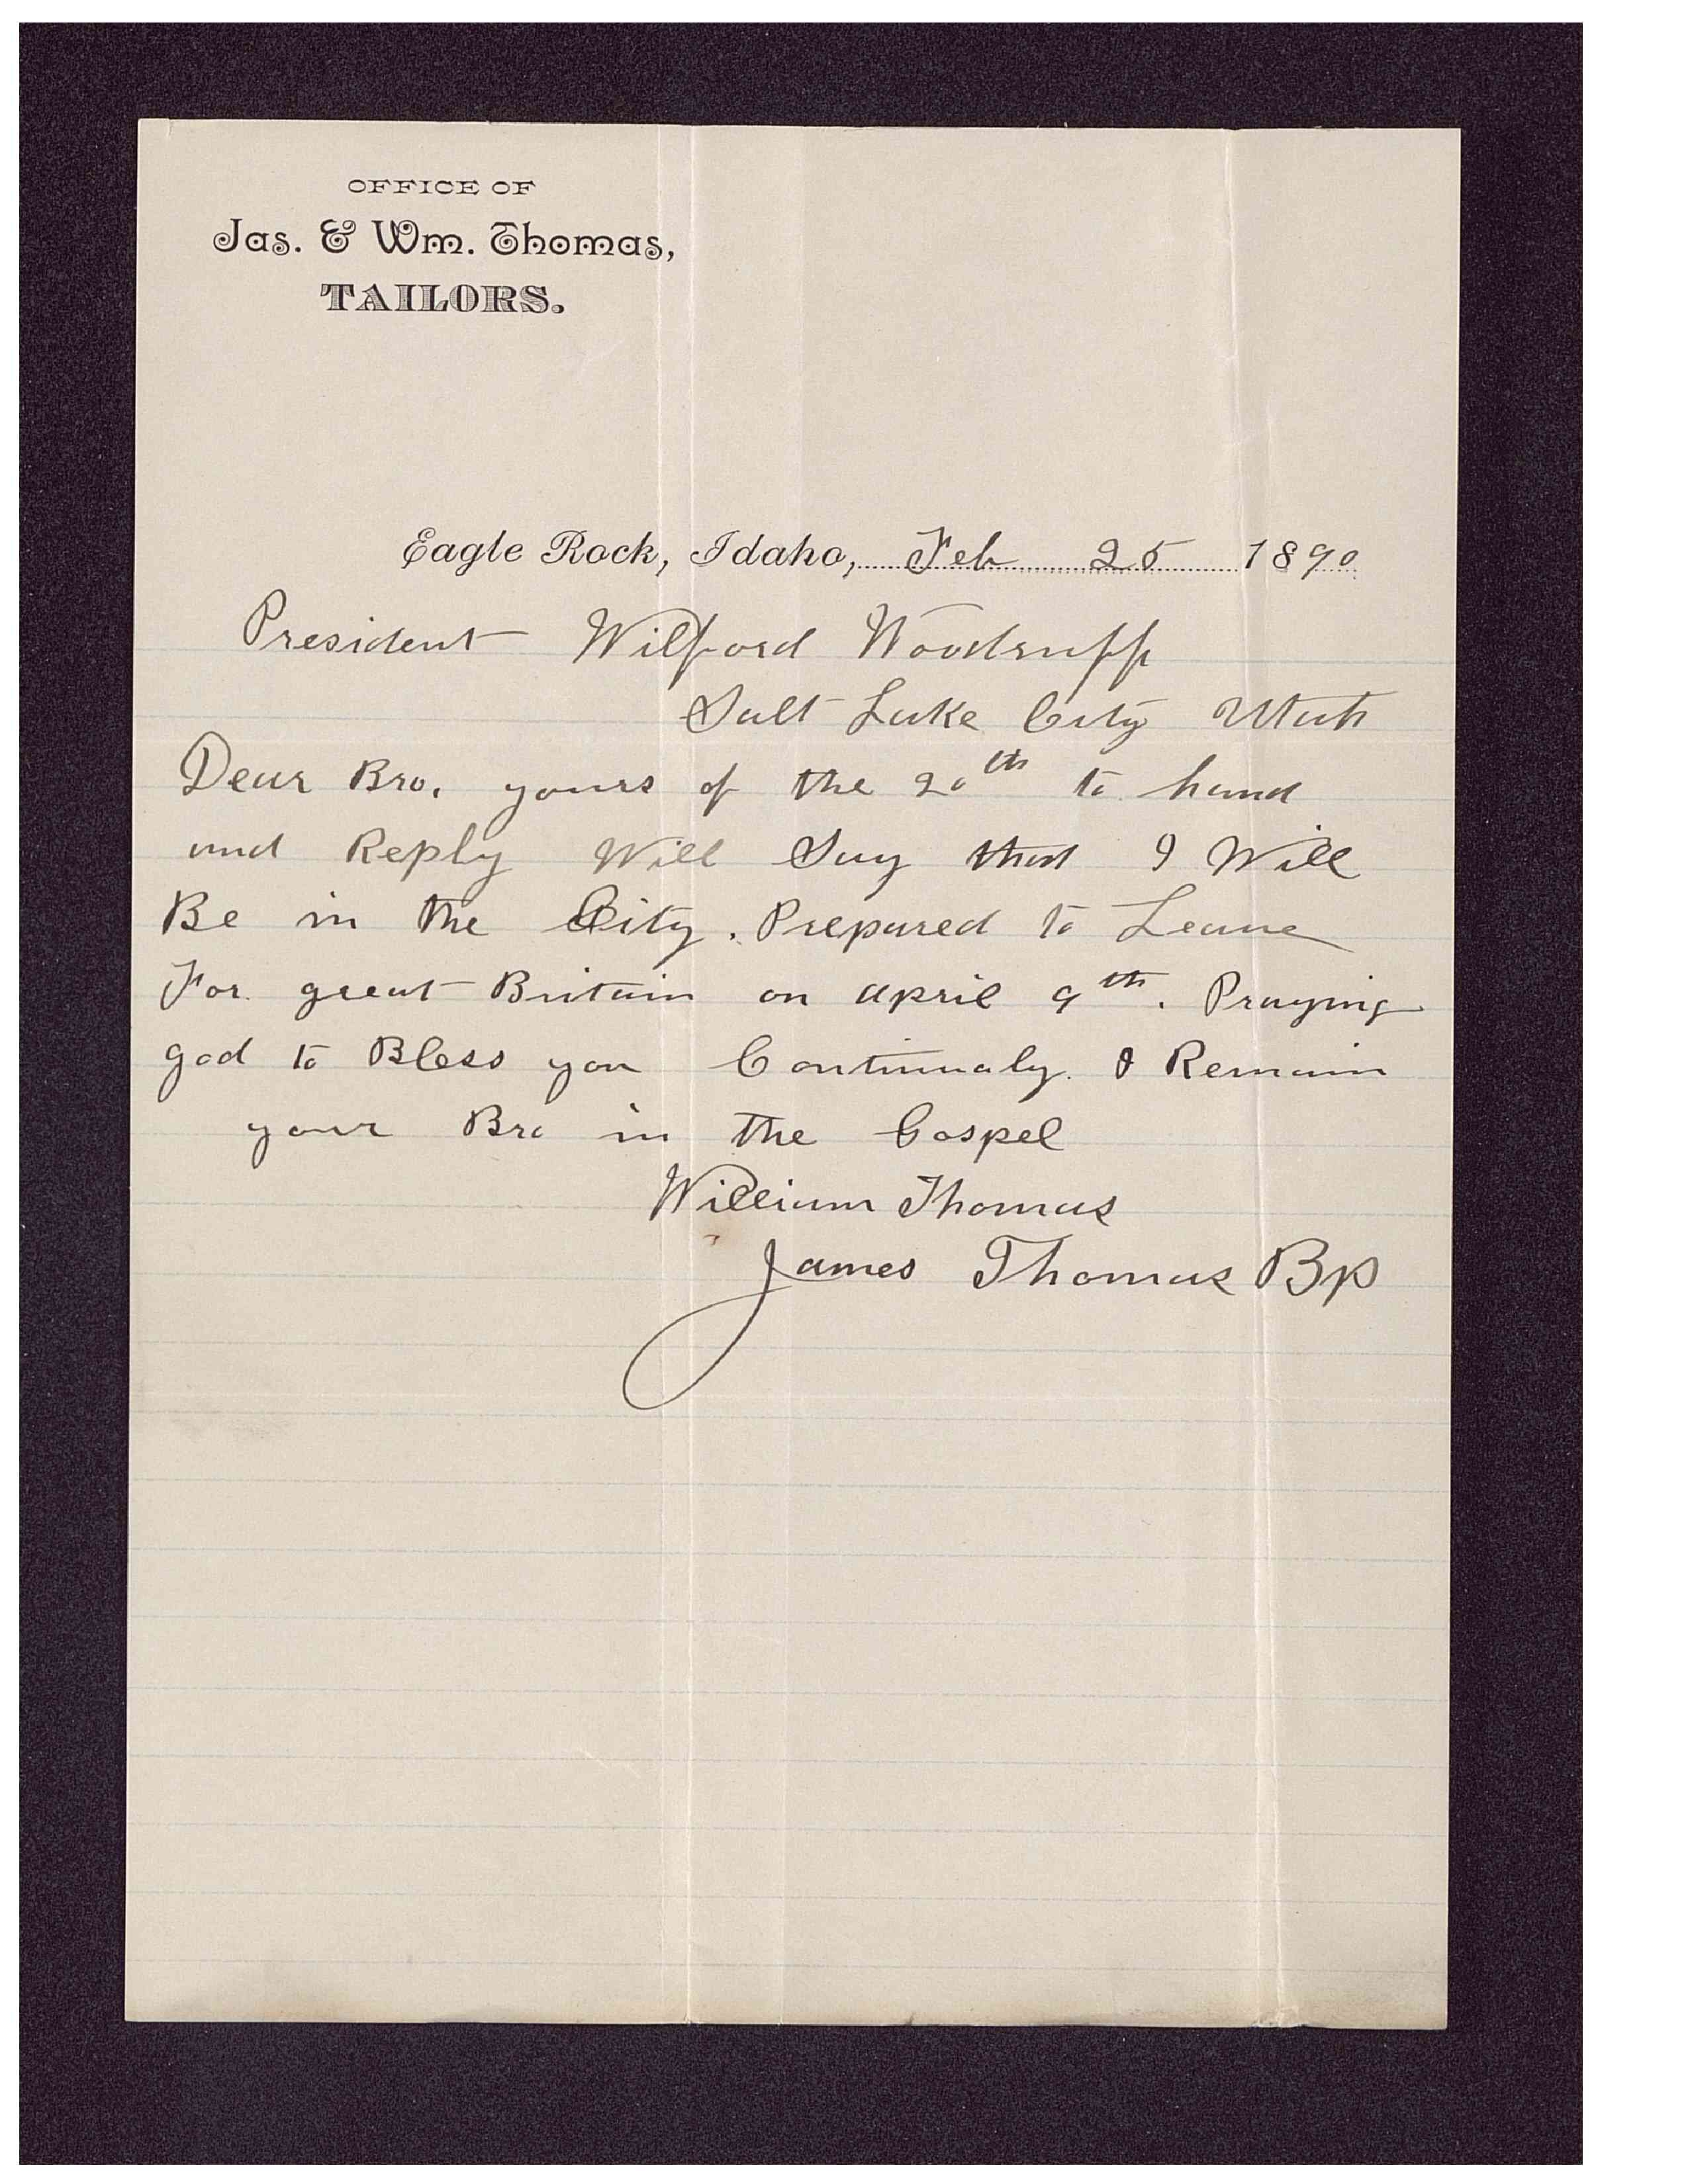 OFFICE OF
Jas. & Wm. Thomas,
TAILORS.
Eagle Rock, Idaho, Feb 25 1890
President Wilford Woodruff
Salt Lake City Utah
Dear Bro. yours of the 20th to hand
and Reply Will Say that I Will
Be in the City. Prepared to Leave
For great Britain on april 9th. Praying
god to Bless you Continualy. I Remain
your Bro in the Gospel
William Thomas
James Thomas Bp